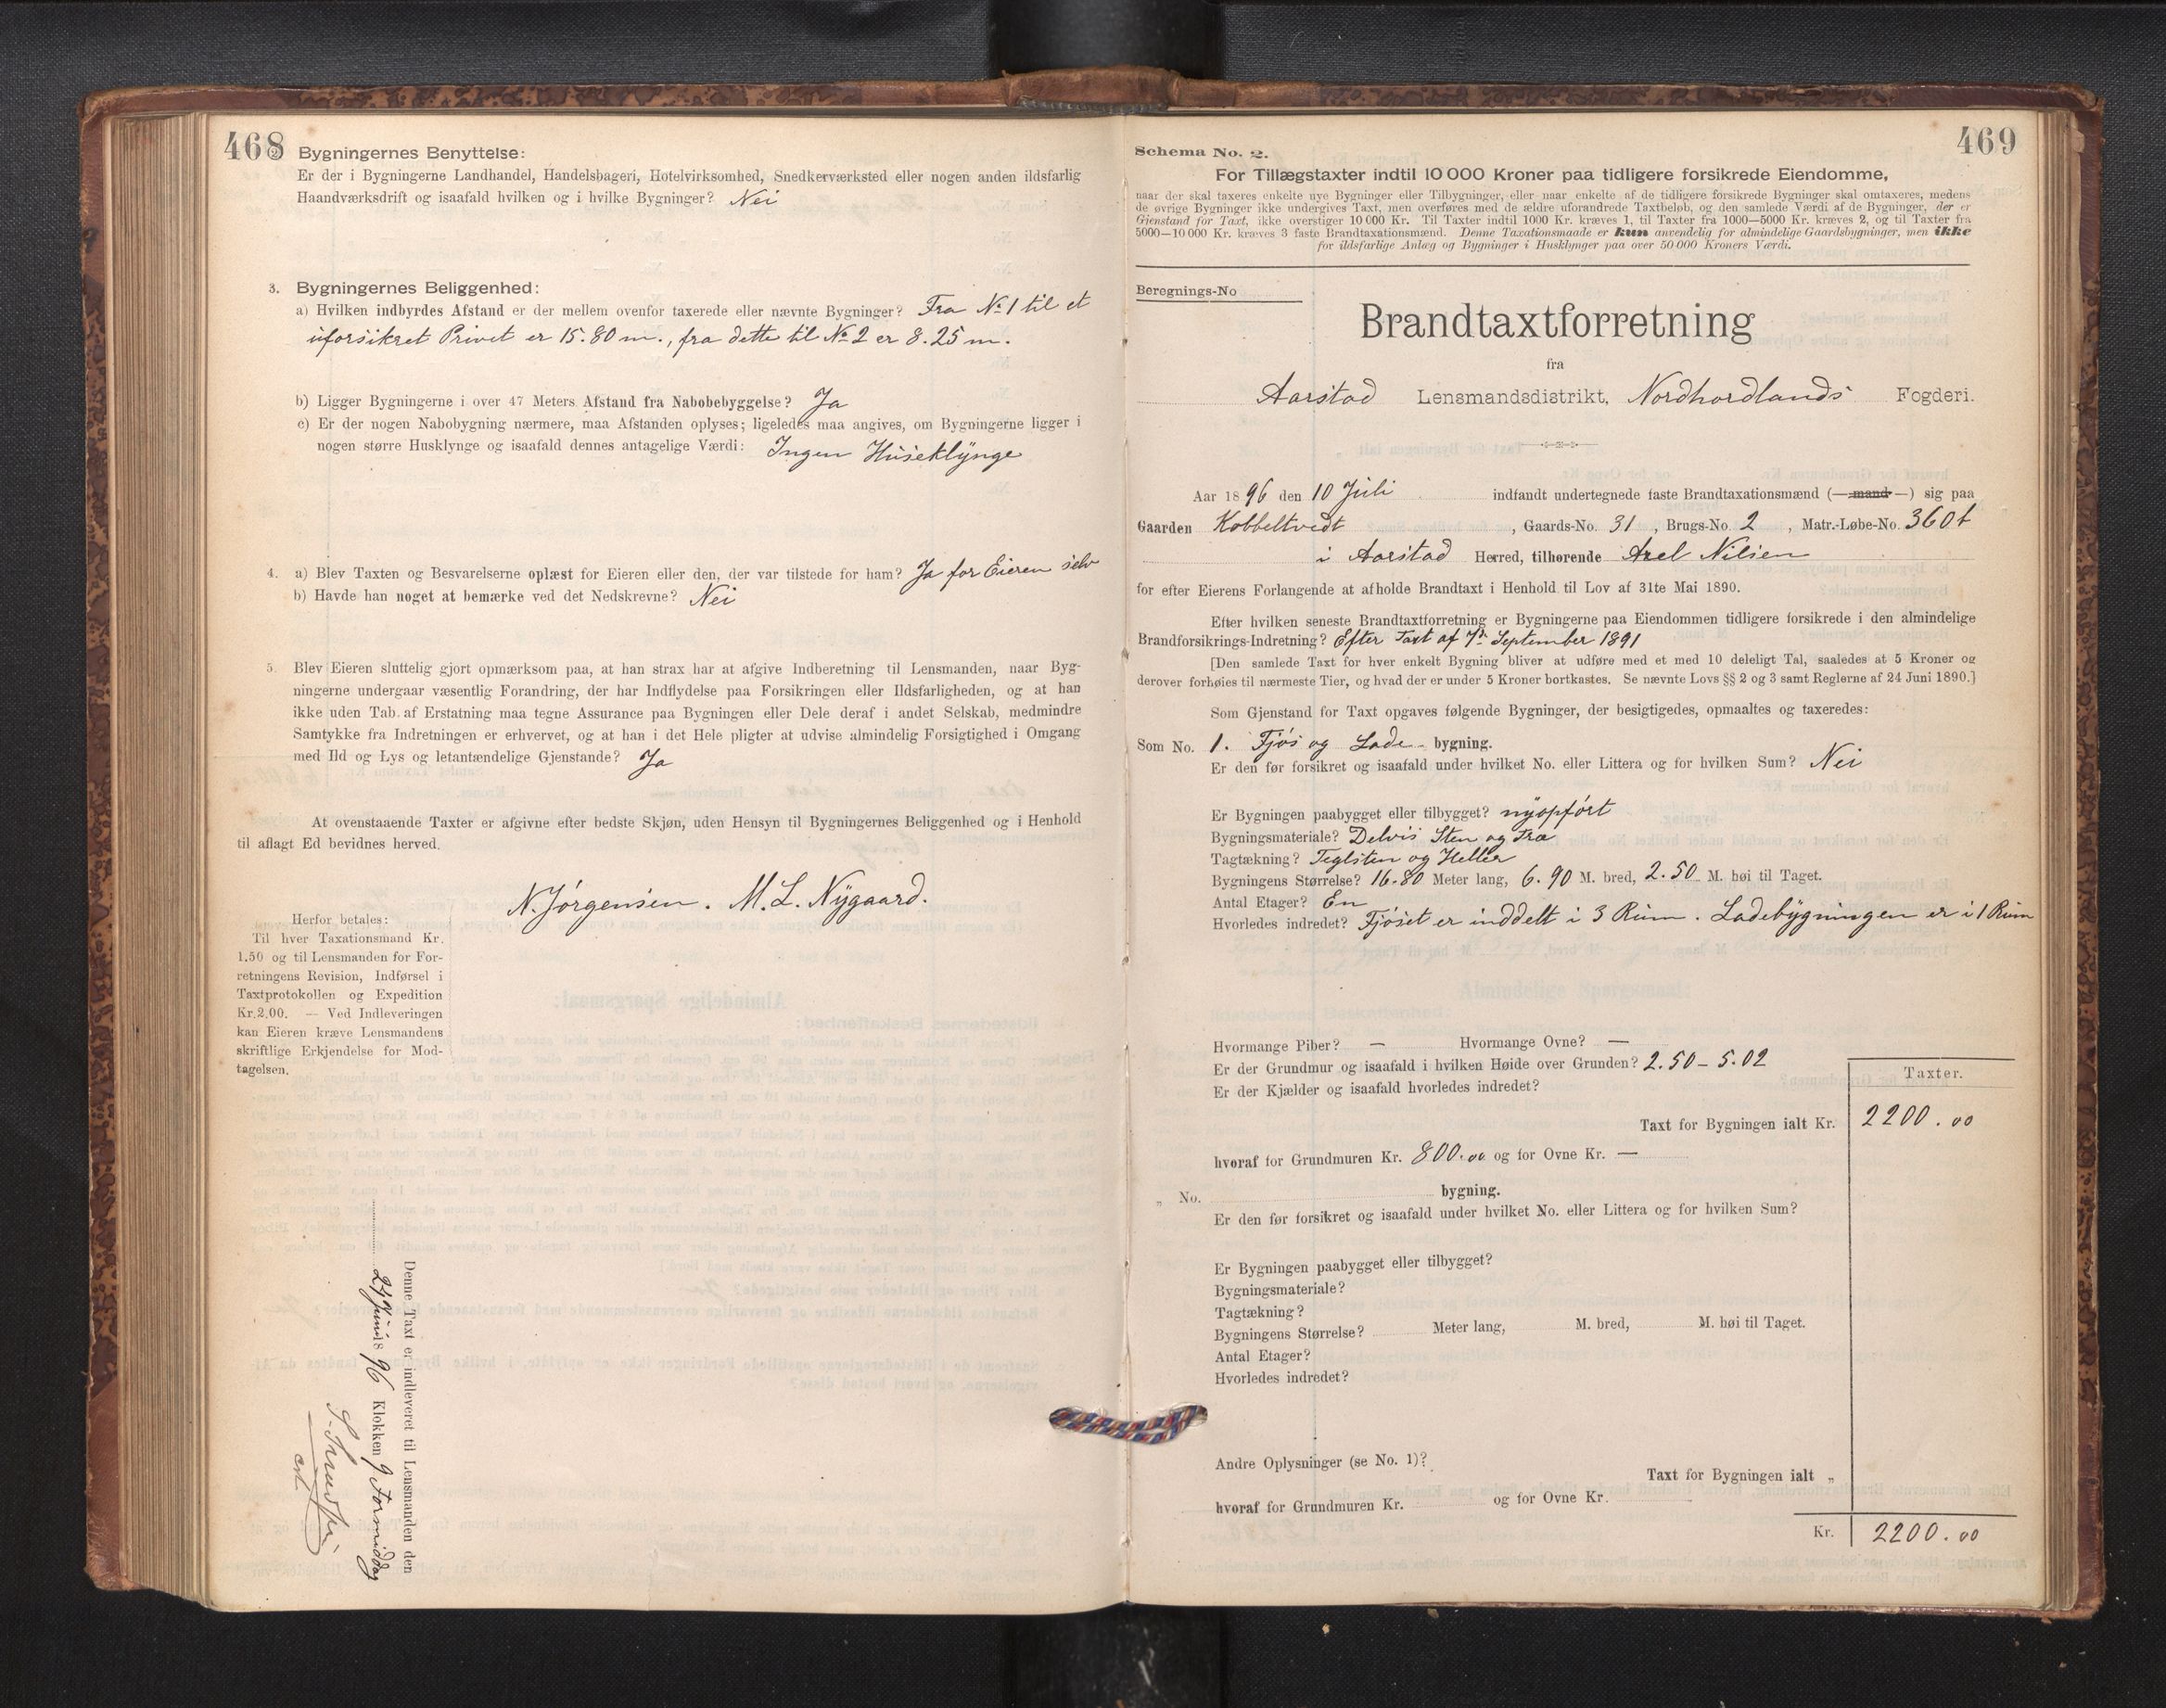 468
2. Bygningernes Benyttelse:
Er der i Bygningerne Landhandel, Handelsbageri, Hotelvirksomhed, Snedkerværksted eller nogen anden ildsfarlig
Haandværksdrift og isaafald hvilken og i hvilke Bygninger? Nei
3. Bygningernes Beliggenhed:
a) Hvilken indbyrdes Afstand er der mellem ovenfor taxerede eller nævnte Bygninger? Fra No 1 til et
uforsikret Privet er 15.80 m., fra dette til No 2 er 8.25 m.
b) Ligger Bygningerne i over 47 Meters Afstand fra Nabobebyggelse? Ja
c) Er der nogen Nabobygning nærmere, maa Afstanden oplyses; ligeledes maa angives, om Bygningerne ligger i
nogen større Husklynge og isaafald dennes antagelige Værdi: Ingen Huseklynge
4. a) Blev Taxten og Besvarelserne oplæst for Eieren eller den, der var tilstede for ham? Ja for Eieren selv
b) Havde han noget at bemærke ved det Nedskrevne? Nei
5. Blev Eieren sluttelig gjort opmærksom paa, at han strax har at afgive Indberetning til Lensmanden, naar Byg-
ningerne undergaar væsentlig Forandring, der har Indflydelse paa Forsikringen eller Ildsfarligheden, og at han
ikke uden Tab af Erstatning maa tegne Assurance paa Bygningen eller Dele deraf i andet Selskab, medmindre
Samtykke fra Indretningen er erhvervet, og at han i det Hele pligter at udvise almindelig Forsigtighed i Omgang
med Ild og Lys og letantændelige Gjenstande? Ja
At ovenstaaende Taxter er afgivne efter bedste Skjøn, uden Hensyn til Bygningernes Beliggenhed og i Henhold
til aflagt Ed bevidnes herved.
N. Jørgensen. M. L. Nygaard.
Herfor betales:
Til hver Taxationsmand Kr.
1.50 og til Lensmanden for For-
retningens Revision, Indførsel i
Taxtprotokollen og Expedition
Kr. 2.00. — Ved Indleveringen
kan Eieren kræve Lensmandens
skriftlige Erkjendelse for Mod-
tagelsen.
Denne Taxt er indleveret til Lensmanden den
18 96 Klokken 9 Formiddag
469
Schema No. 2.
For Tillægstaxter indtil 10 000 Kroner paa tidligere forsikrede Eiendomme,
naar der skal taxeres enkelte nye Bygninger eller Tilbygninger, eller naar enkelte af de tidligere forsikrede Bygninger skal omtaxeres, medens
de øvrige Bygninger ikke undergives Taxt, men overføres med de ældre uforandrede Taxtbeløb, og den samlede Værdi af de Bygninger, der er
Gjenstand for Taxt, ikke overstiger 10 000 Kr. Til Taxter indtil 1000 Kr. kræves 1, til Taxter fra 1000—5000 Kr. kræves 2, og til Taxter fra
5000—10 000 Kr. kræves 3 faste Brandtaxationsmænd. Denne Taxationsmaade er kun anvendelig for almindelige Gaardsbygninger, men ikke
for ildsfarlige Anlæg og Bygninger i Husklynger paa over 50 000 Kroners Værdi.
Beregnings-No
Brandtaxtforretning
fra
Aarstad Lensmandsdistrikt, Nordhordlands Fogderi.
Aar 1896 den 10 Juli indfandt undertegnede faste Brandtaxationsmænd (—mand—) sig paa
Gaarden Kobbeltvedt, Gaards-No. 31, Brugs-No. 2, Matr.-Løbe-No. 360 t
i Aarstad Herred, tilhørende Axel Nilsen
for efter Eierens Forlangende at afholde Brandtaxt i Henhold til Lov af 31te Mai 1890.
Efter hvilken seneste Brandtaxtforretning er Bygningerne paa Eiendommen tidligere forsikrede i den almindelige
Brandforsikrings-Indretning? Efter Taxt af 7de September 1891
[Den samlede Taxt for hver enkelt Bygning bliver at udføre med et med 10 deleligt Tal, saaledes at 5 Kroner og
derover forhøies til nærmeste Tier, og hvad der er under 5 Kroner bortkastes. Se nævnte Lovs §§ 2 og 3 samt Reglerne af 24 Juni 1890.]
Som Gjenstand for Taxt opgaves følgende Bygninger, der besigtigedes, opmaaltes og taxeredes:
Som No. 1. Fjøs og Lade- bygning.
Er den før forsikret og isaafald under hvilket No. eller Littera og for hvilken Sum? Nei
Er Bygningen paabygget eller tilbygget? nyopført
Bygningsmateriale? Delvis Sten og Træ
Tagtækning? Teglsten og Heller
Bygningens Størrelse? 16.80 Meter lang, 6.90 M. bred, 2.50 M. høi til Taget.
Antal Etager? En
Hvorledes indredet? Fjøset er inddelt i 3 Rum. Ladebygningen er i 1 Rum
Hvormange Piber? — Hvormange Ovne? —
Er der Grundmur og isaafald i hvilken Høide over Grunden? 2.50 – 5.02
Er der Kjælder og isaafald hvorledes indredet?
Taxter.
Taxt for Bygningen ialt Kr. 2200.00
hvoraf for Grundmuren Kr. 800.00 og for Ovne Kr. —
„ No. bygning.
Er den før forsikret og isaafald under hvilket No. eller Littera og for hvilken Sum?
Er Bygningen paabygget eller tilbygget?
Bygningsmateriale?
Tagtækning?
Bygningens Størrelse? Meter lang, M. bred, M. høi til Taget.
Antal Etager?
Hvorledes indredet?
Andre Oplysninger (se No. 1)?
Taxt for Bygningen ialt „
hvoraf for Grundmuren Kr. og for Ovne Kr.
Kr. 2200.00